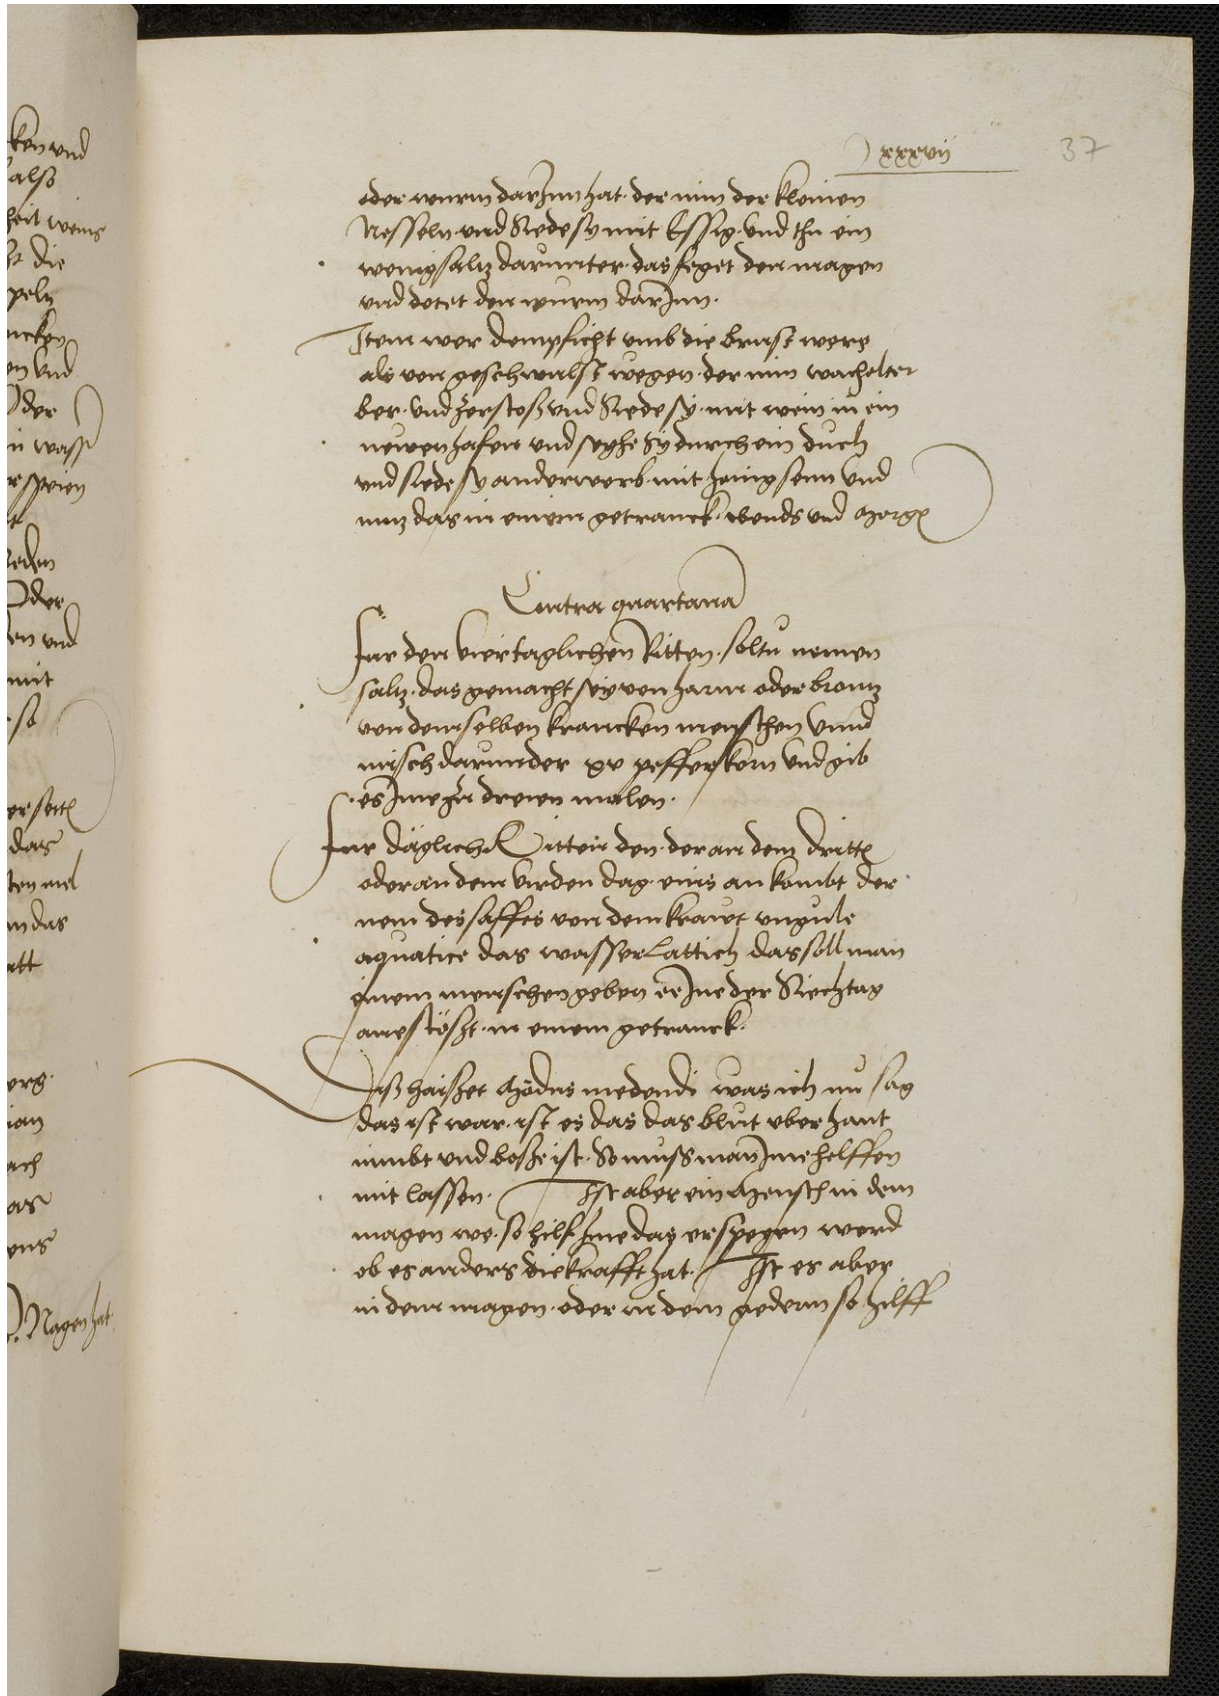 xxxvij 37
oder wurm darJnn hat · der nim der kleinen
Nesseln vnd Siede sy mit Essig · vnd thu ein
wenig saltz darunnter · das feget den magen
vnd dotet den wurm darJnn ·
Jtem wer dempficht vmb die brust were
als von geschwulst wegen · der nim wacholter
ber · vnd zerstoß vnd Siede sy · mit wein in ein
newen hafen vnd seyhe sy durch ein duch
vnd siede sy anderwerb · mit honigsem vnd
nutz das in einem getranck · abends vnd Morg
Contra quartana
Fur den viertaglichen Ritten · soltu nemen
saltz · das gemacht sey von harm oder bruntz
von demselben krancken menschen vnnd
misch darunder xv pfefferkorn vnd gib
es Jme zu dreien malen ·
Fur däglich Ritten den · der an dem dritte
oder an dem virden dag · eins an kombt der
nem des saffes von dem kraut vngule
aquatice das wasserlattich das soll man
einem menschen geben ee Jne der Siechtag
anestößt · in einem getranck ·
Diß haisset Modus medendi was ich nu sag
das ist war · ist es das das blut vberhant
nimbt vnd boße ist · So muss man Jme helffen
mit lassen · Jst aber ein Mensch in dem
magen we · so hilf Jme das er speyen werd
ob es anders die krafft hat · Jst es aber
in dem magen · oder in dem gederm so hilff
ken vnd
also
die
peltz
ncken
en vnd
Oder
in wass
speien
Oder
en vnd
mit
so
das
mdas
att
ach
ens
Magen hat